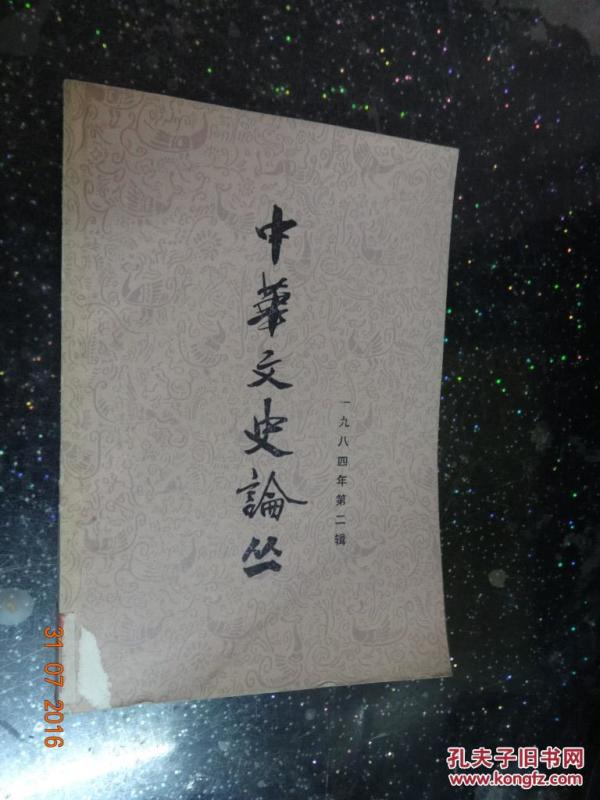 中華文史論丛
一九八四年第二辑
31 07 2016
孔夫子旧书网
www.kongfz.com